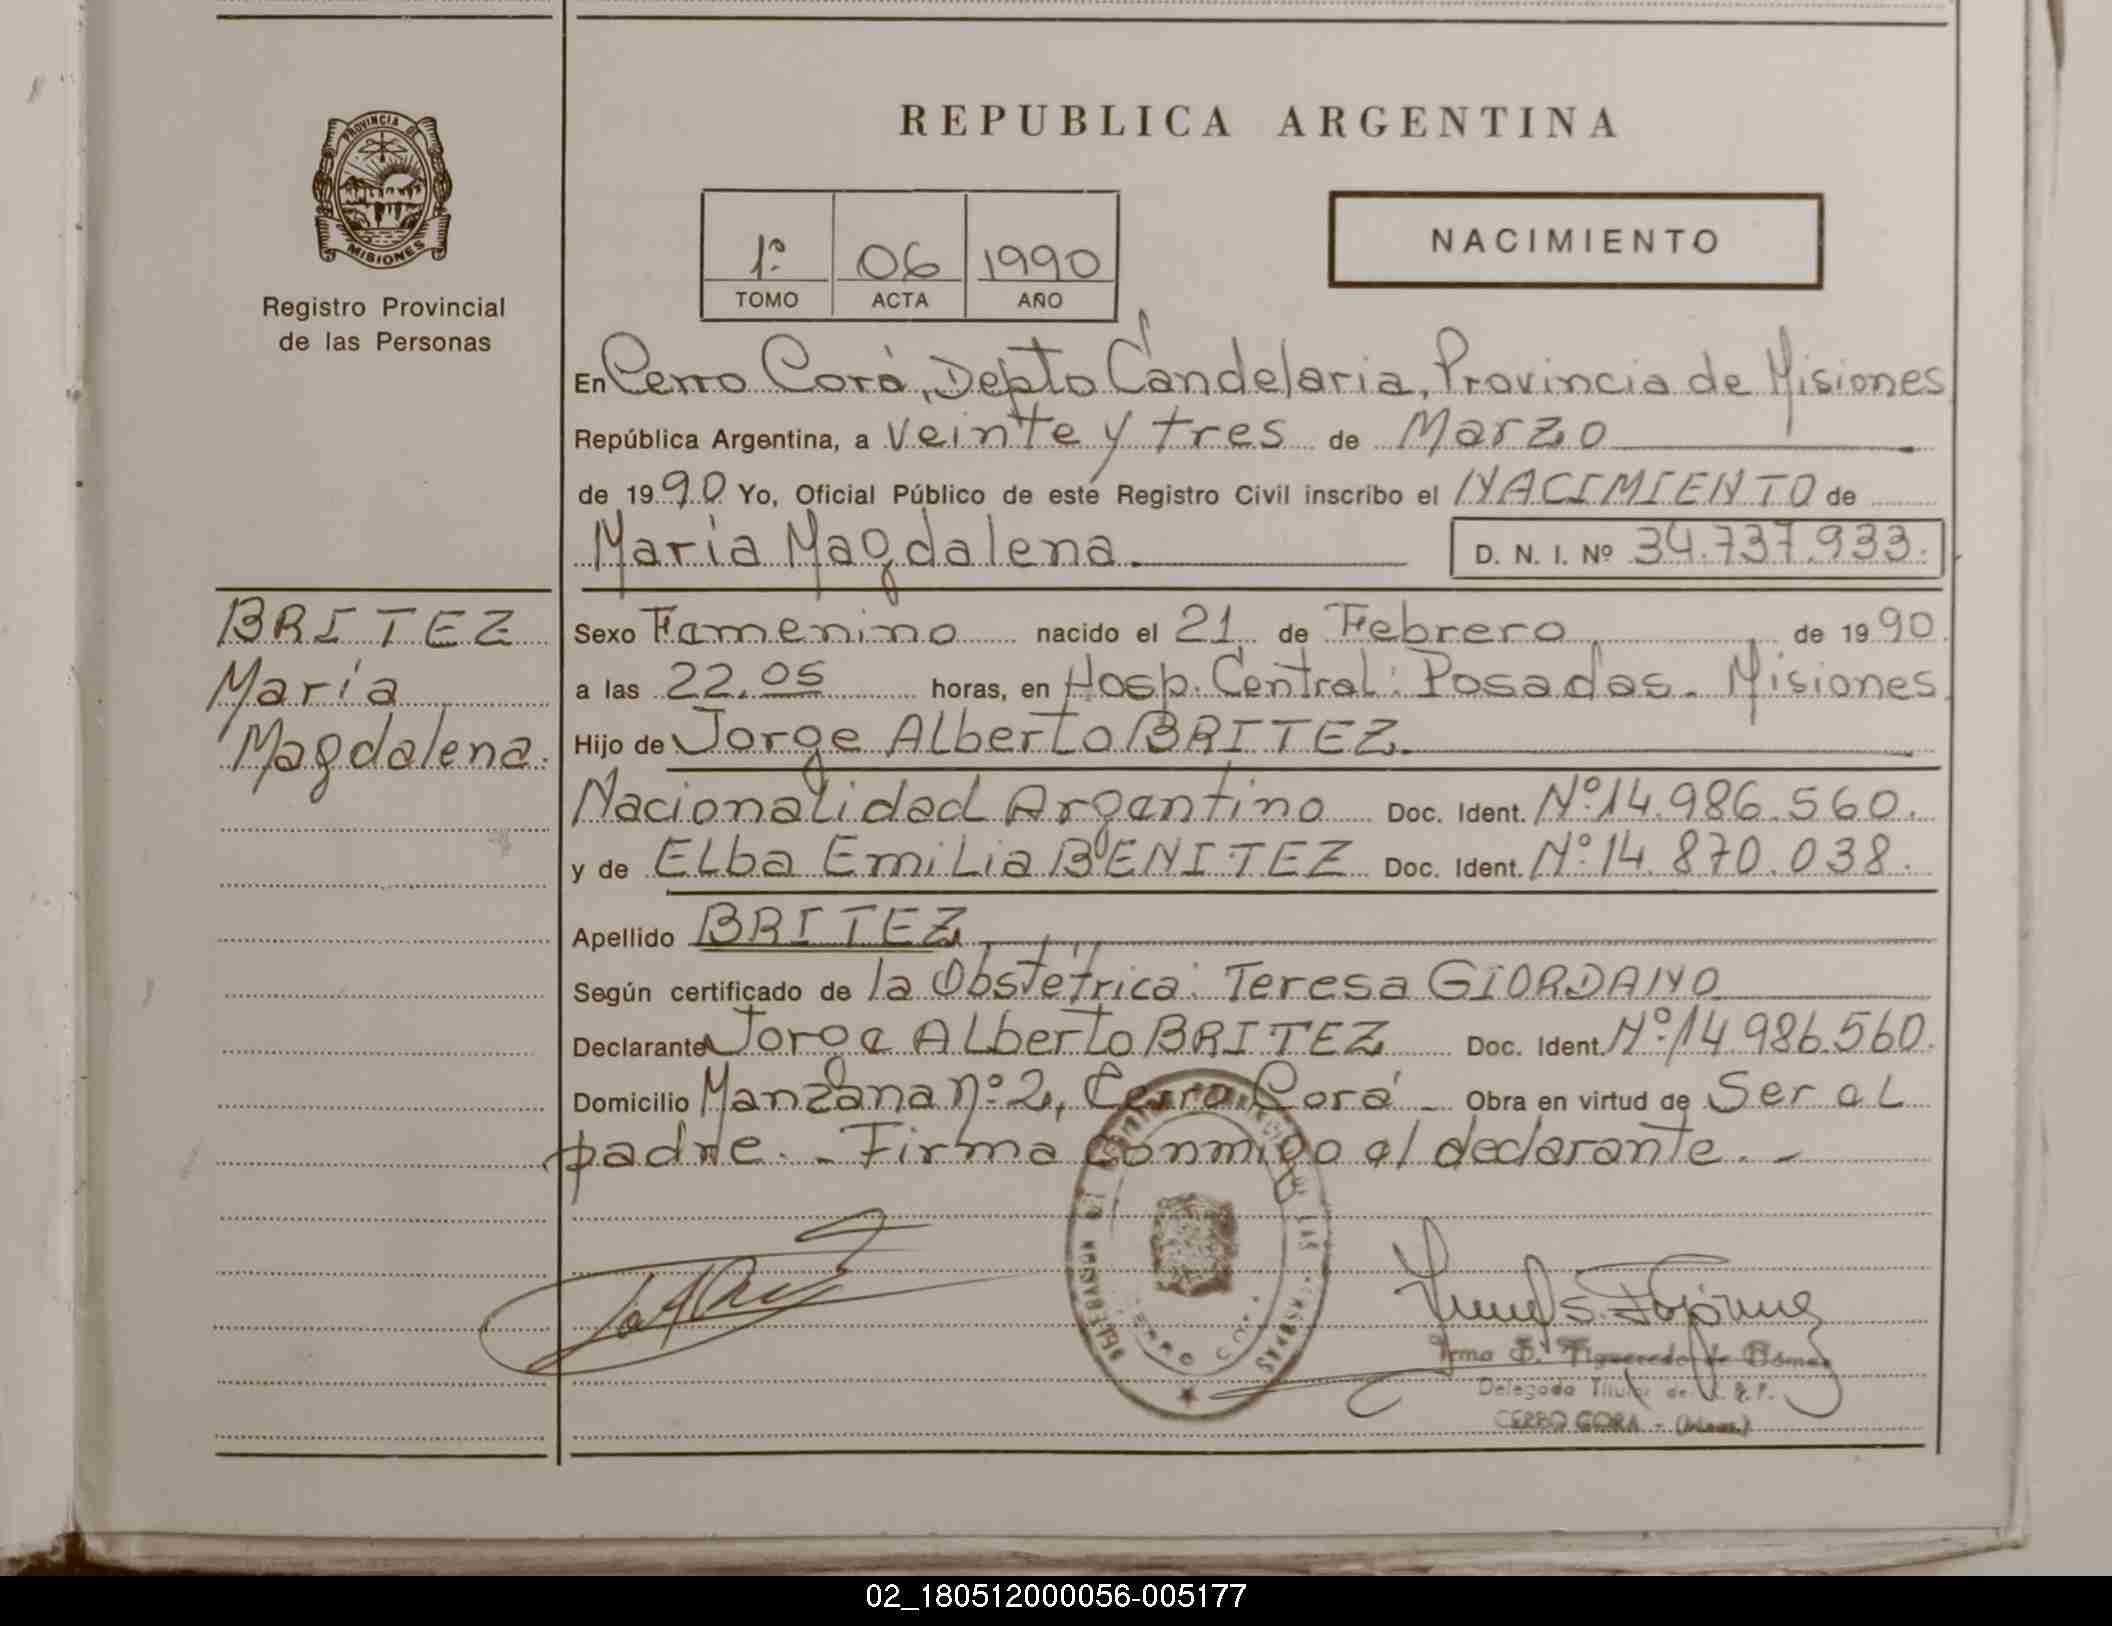 REPUBLICA ARGENTINA
PROVINCIA DE
MISIONES
Registro Provincial
de las Personas
1º 06 1990
TOMO ACTA AÑO
NACIMIENTO
En Cerro Corá, Depto Candelaria, Provincia de Misiones
República Argentina, a veinte y tres de Marzo
de 1990 Yo, Oficial Público de este Registro Civil inscribo el NACIMIENTO de
María Magdalena D. N. I. Nº 34.737.933.
BRITEZ
María
Magdalena.
Sexo Femenino nacido el 21 de Febrero de 1990.
a las 22.05 horas, en Hosp. Central: Posadas. Misiones
Hijo de Jorge Alberto BRITEZ.
Nacionalidad Argentino Doc. Ident. Nº 14.986.560.
y de Elba Emilia BENITEZ Doc. Ident. Nº 14.870.038.
Apellido BRITEZ
Según certificado de la Obstétrica: Teresa GIORDANO
Declarante Jorge Alberto BRITEZ Doc. Ident. Nº 14.986.560.
Domicilio Manzana nº 2, Cerro Corá - Obra en virtud de Ser al
padre. - Firma conmigo el declarante. -
Irma S. Figueredo de Gómez
Delegada Titular de
CERRO CORA - (Mnes.)
02_180512000056-005177